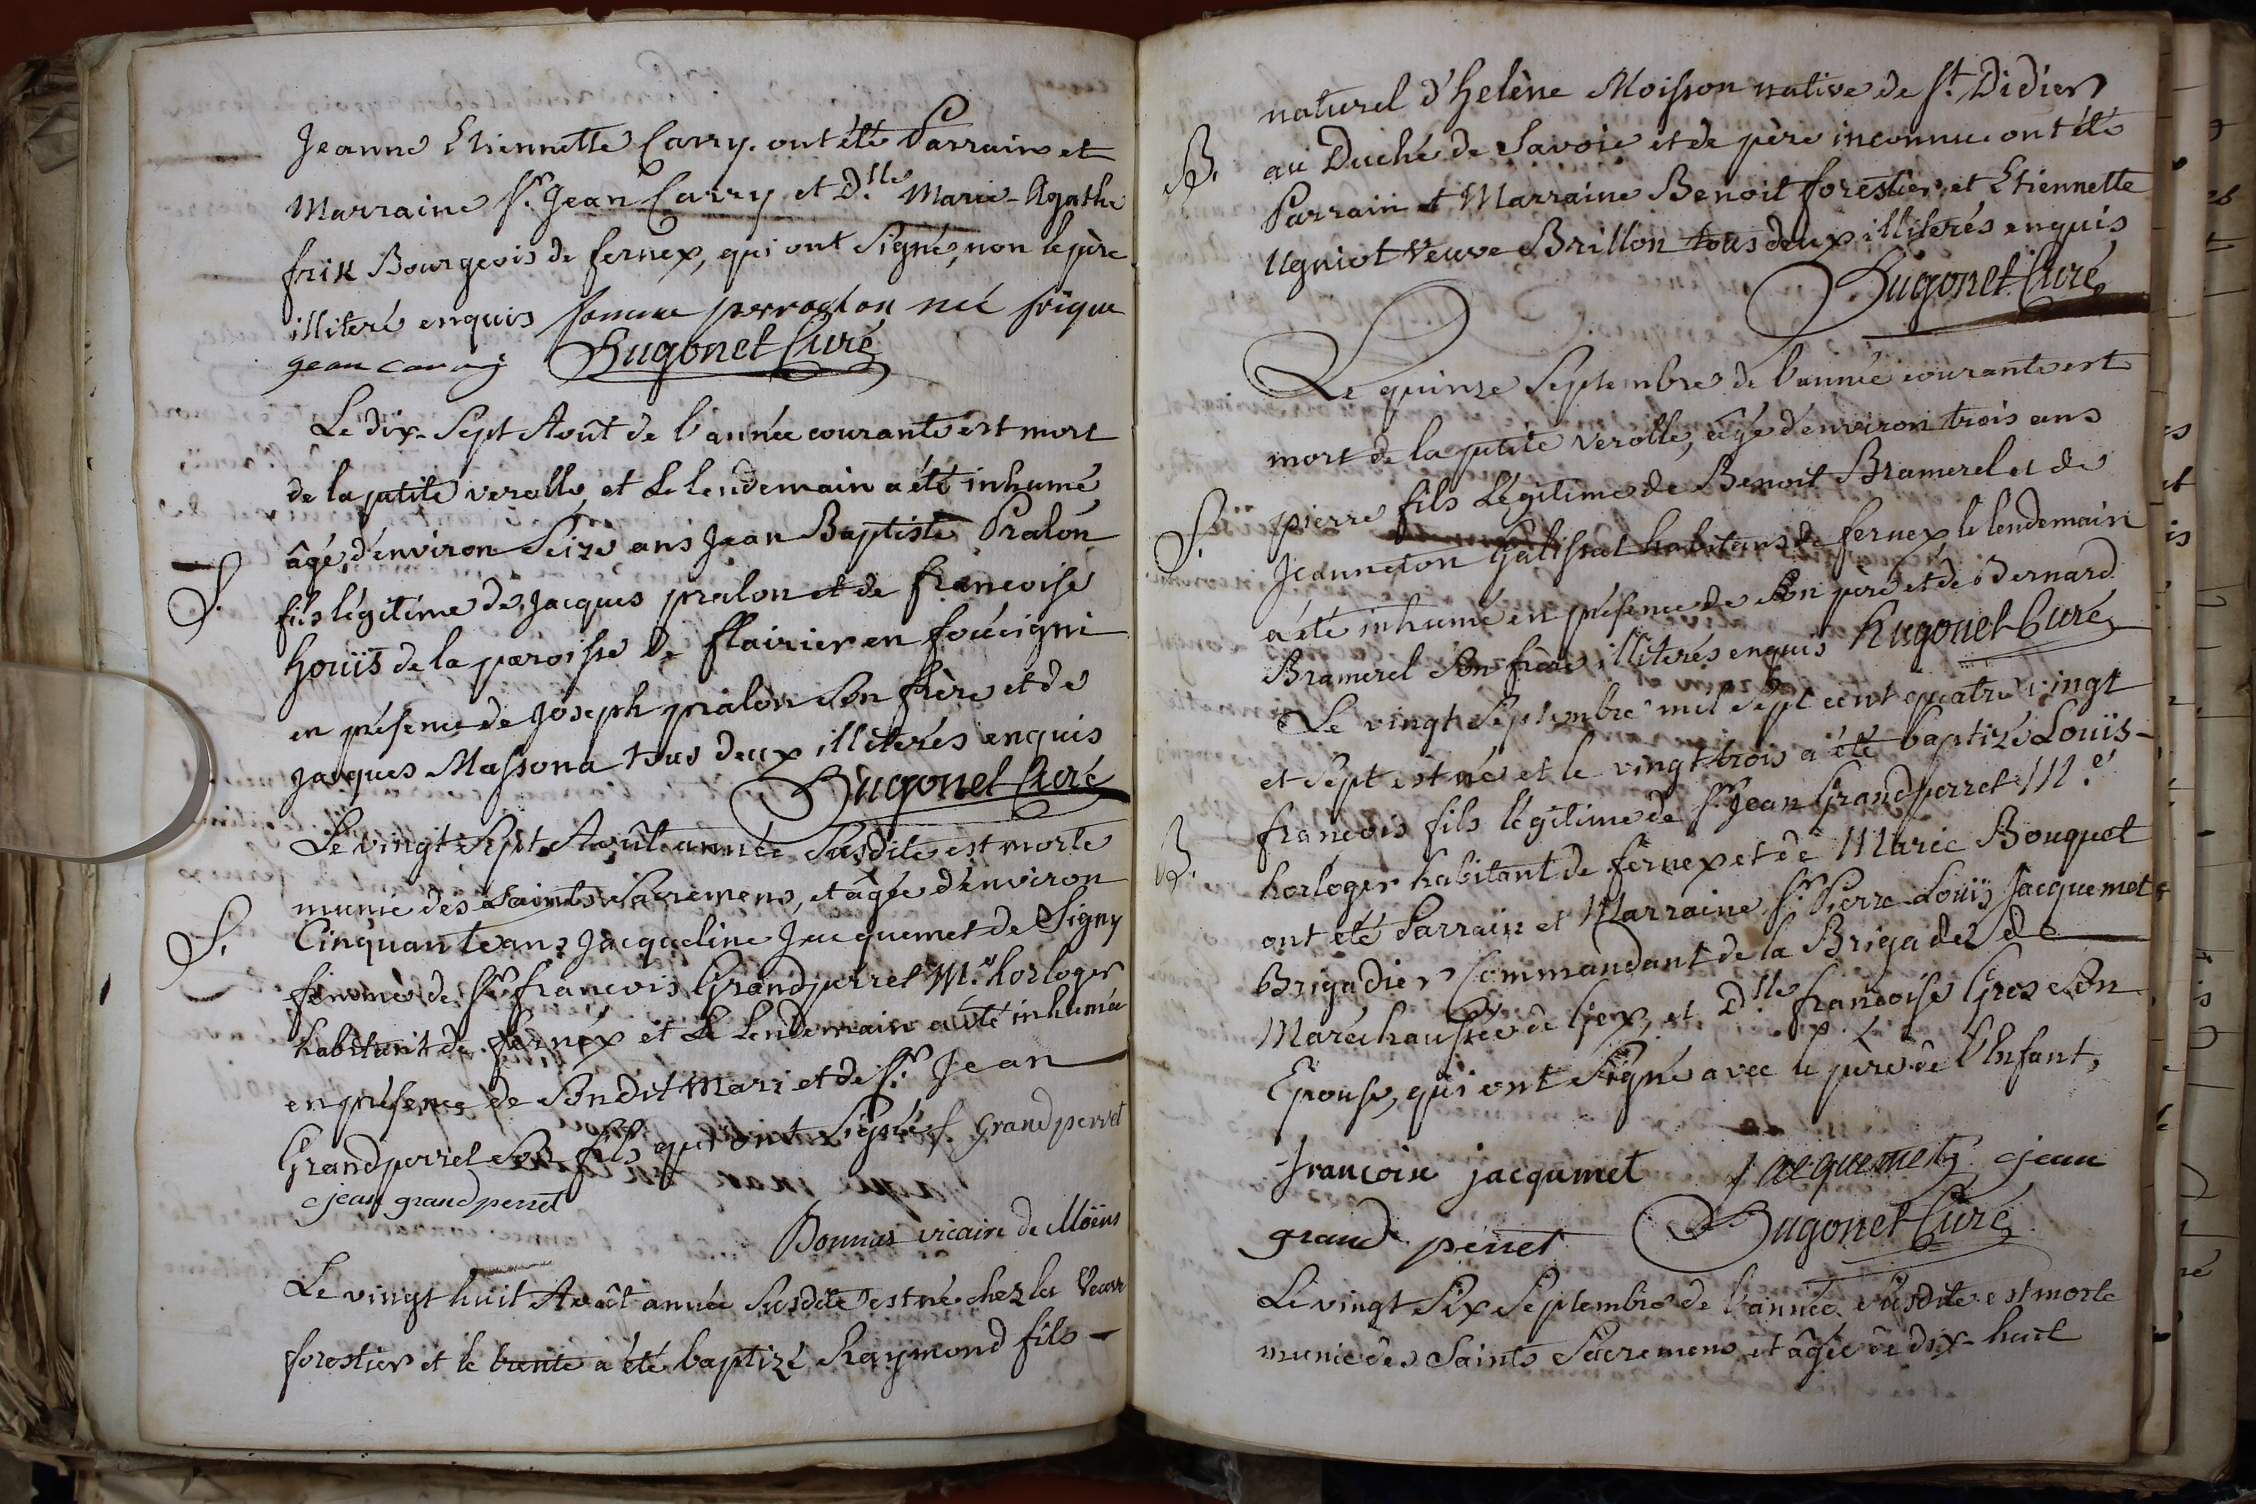 Jeanne Etiennette Carry. ont été Parrain et
Marraine Sr. Jean Carry et Dlle Marie-Agathe
frik Bourgeois de fernex, qui ont Signé, non le père
illiteré enquis perrachon neé frique
jean carry Hugonet Curé
Le dix-Sept Août de l'année courante est mort
de la petite verolle, et Le lendemain a été inhumé
âgé, d'environ Seize ans Jean Baptiste Pralon
S. fils légitime de Jacques pralon et de francoise
houïs de la paroisse de flairier en foucigni
en présence de Joseph pralon Son frère et de
Jacques Massona tous deux illiterés enquis
Hugonet Curé
Le vingt Sept Août année Susdite est morte
munie des Saints Sacremens, et âgée d'environ
S. Cinquante ans Jacqueline Jacquemet de Signy
femme de Sr. francois Grandperret Me. horloger
habitant de fernex et Le Lendemain a été inhumée
en présence de Son dit Mari et de Sr. Jean
Grandperret Son fils qui ont Signé f. Grandperret
jean grandperret
vicaire de Moëns
Le vingt huit Août année Susdite est né chez la Veuve
forestier et le trente a été baptizé Raymond fils
naturel d'helène Moisson native de St. Didier
B. au Duché de Savoie et de père inconnu. ont été
Parrain et Marraine Benoit forestier et Etiennette
Ugniot Veuve Brillon tous deux illiterés enquis
Hugonet Curé
Le quinze Septembre de l'année courante est
mort de la petite verolle, âgé d'environ trois ans
S. pierre fils Légitime de Benoit Bramerel et de
Jeanneton Galissat habitans de fernex le lendemain
a été inhumé en présence de Son père et de Bernard
Bramerel Son frère illiterés enquis Hugonet Curé
Le vingt Septembre mil Sept cent quatre vingt
et Sept est né et le vingt trois a été baptizé Louïs-
francois fils légitime de Sr. Jean Grandperret Me.
B. horloger habitant de fernex et de Marie Bouquet
ont été Parrain et Marraine Sr. Pierre Louïs Jacquemet
Brigadier Commandant de la Brigade de
Maréchaussée de Gex, et Dlle francoise Gros Son
Epouse, qui ont Signé avec le père de l'Enfant,
francoise jacqumet Jacquemet jean
grand perret Hugonet Curé
Le vingt Six Septembre de l'année Susdite est morte
munie des Saints Sacremens et âgée de dix-huit